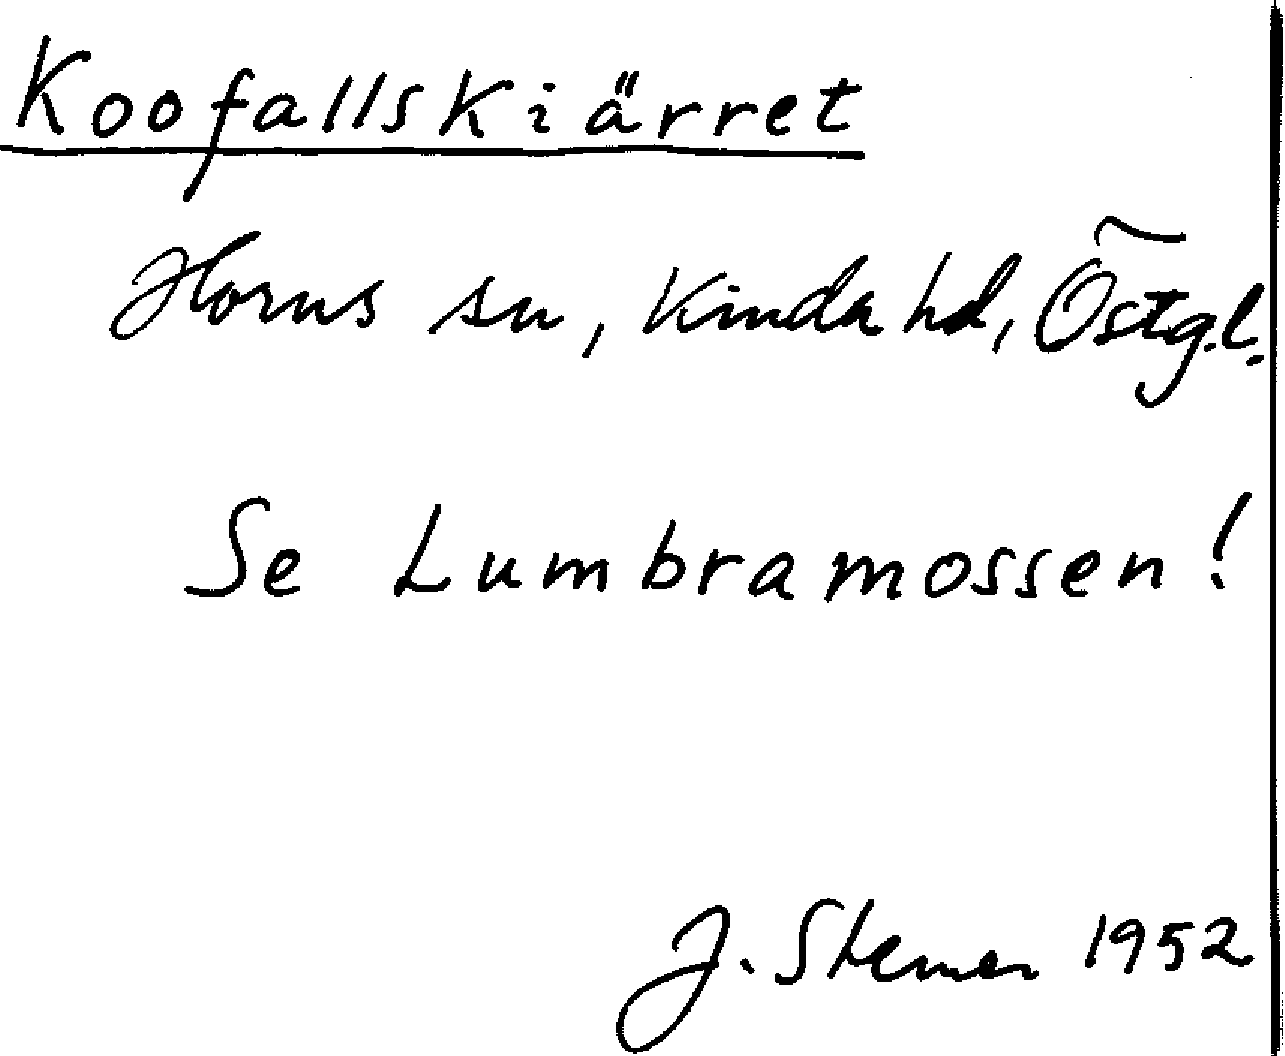 Koofallskiärret
Horns sn, Kinda hd, Östg.l.
Se Lumbramossen!
J. 1952